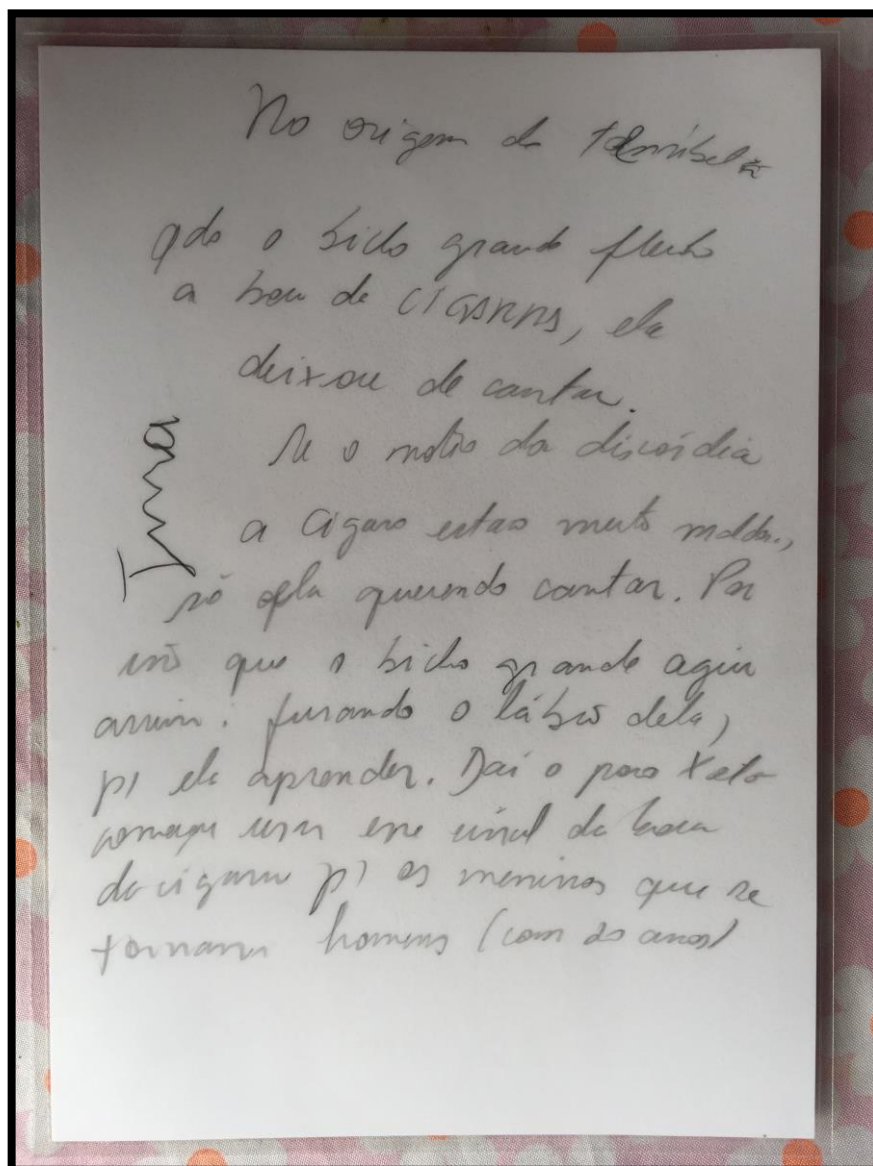 No origem da
qdo o bicho grande flecho
a boca da CIGARRA, ela
deixou de cantar.
Se o motivo da discórdia
a cigarra estao muito
só ela querendo cantar. Por
isso que o bicho grande agiu
assim: furando o lábio dela,
p/ ela aprender. Daí o povo Xeta
começa usar esse sinal da boca
da cigarra p/ os meninos que se
tornaram homens (com 20 anos)